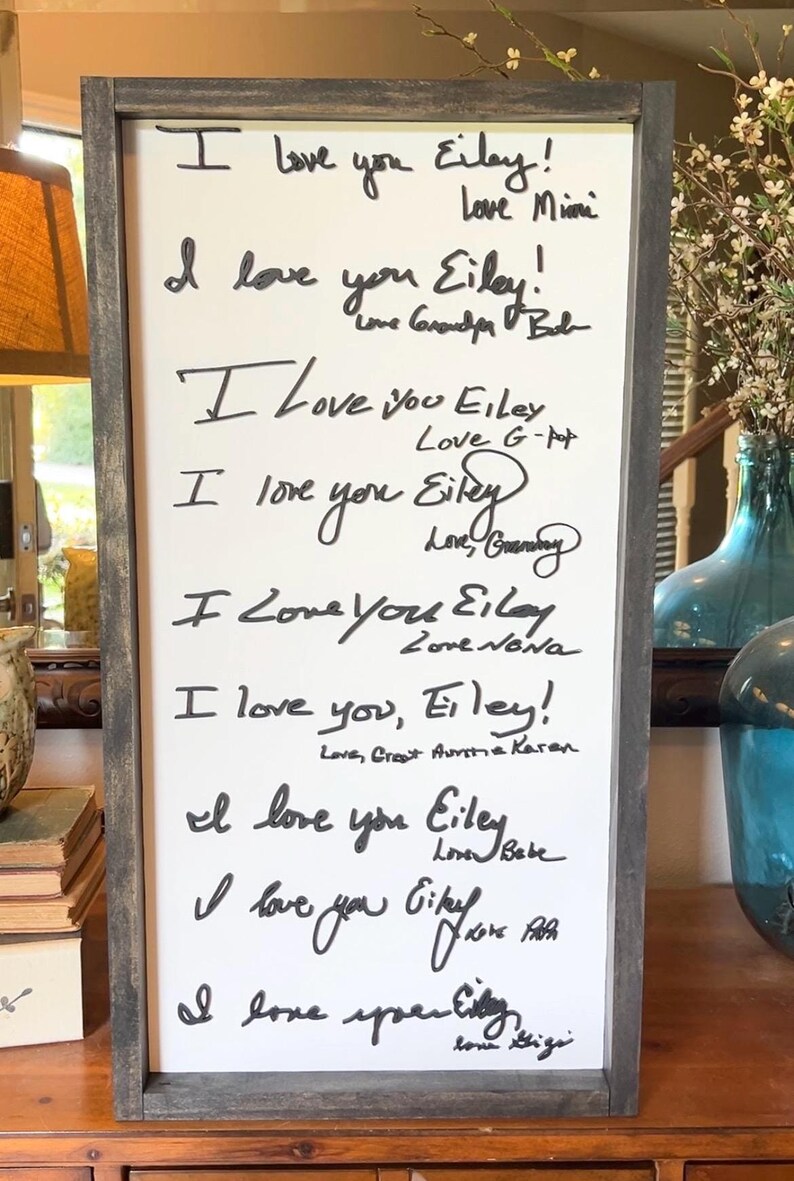 I love you Eiley!
Love Mimi
I love you Eiley!
Love Grandpa Bob
I Love you Eiley
Love G-pop
I love you Eiley
Love, Grammy
I Love You Eiley
Love NaNa
I love you, Eiley!
Love, Great Auntie Karen
I love you Eiley
Love Bebe
I love you Eiley
Love PaPa
I love you Eiley
love Gigi